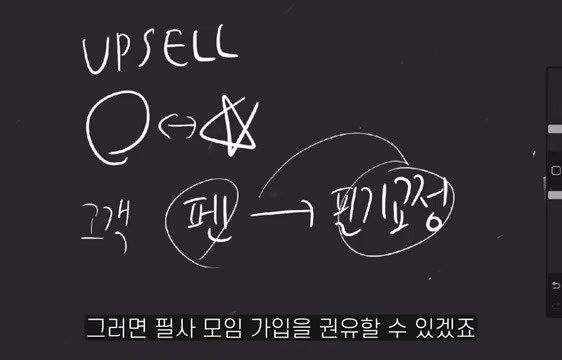 UPSELL
고객 펜 → 필기교정
그러면 필사 모임 가입을 권유할 수 있겠죠